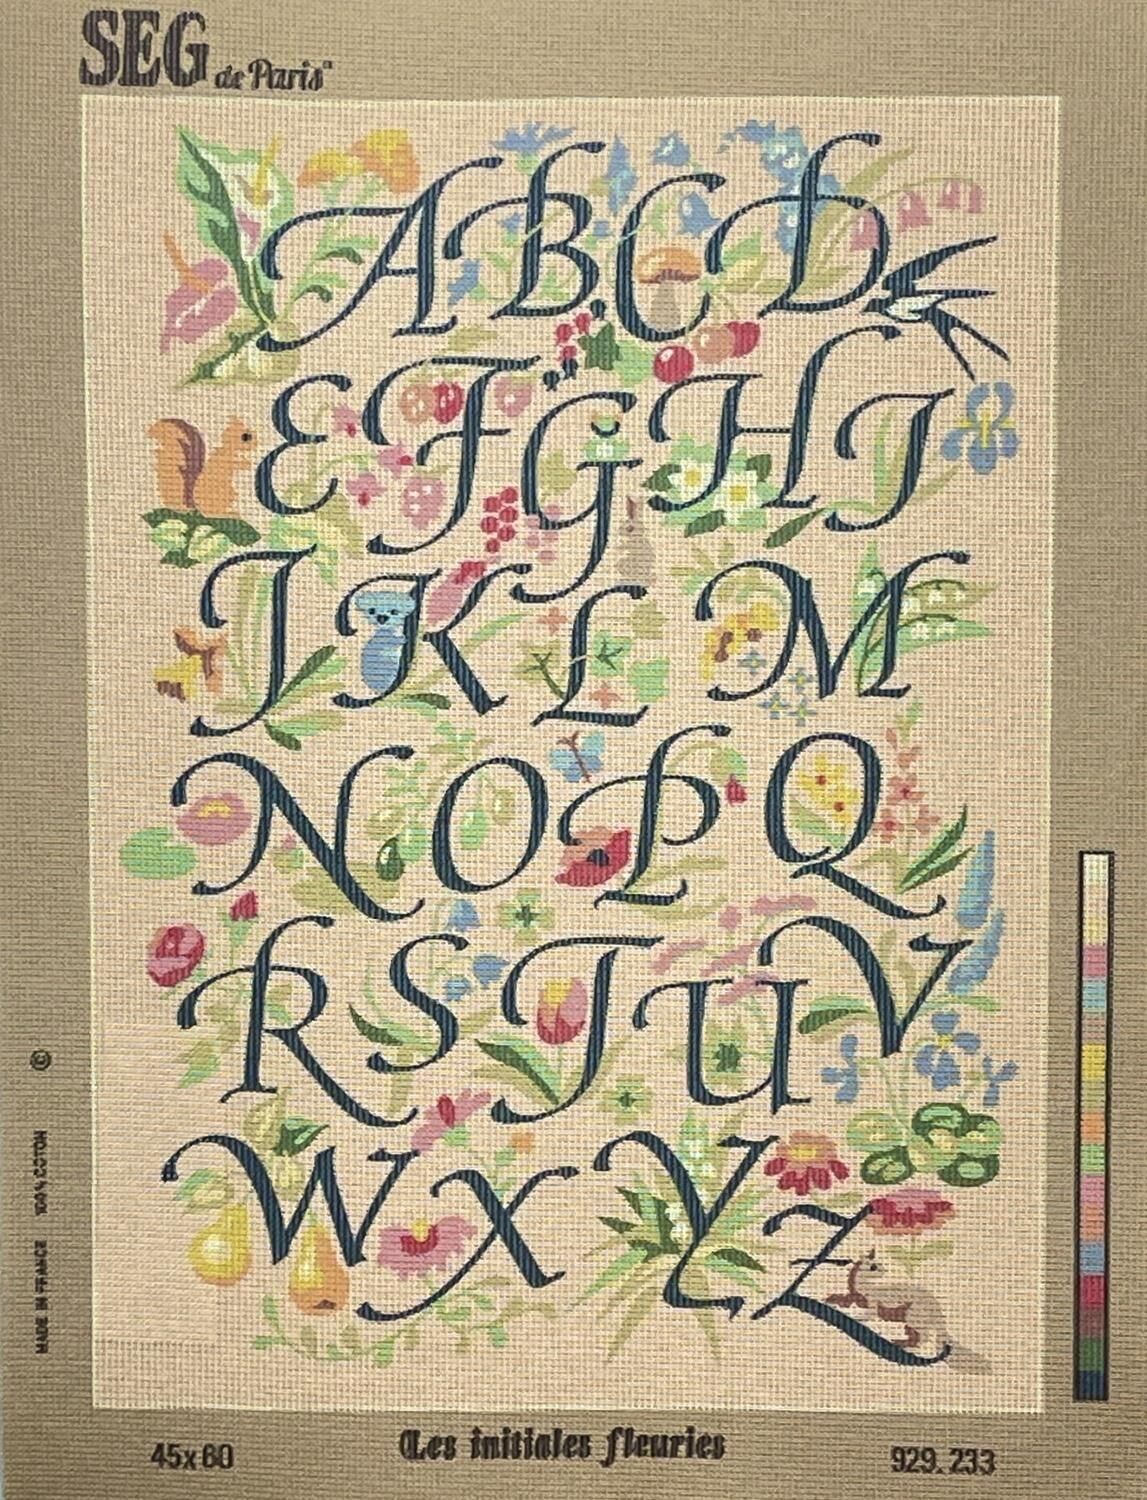 SEG de Paris
A B C D
E F G H I
J K L M
N O P Q
R S T U V
W X Y Z
© 100% COTON MADE IN FRANCE
45x60 Les initiales fleuries 929.233